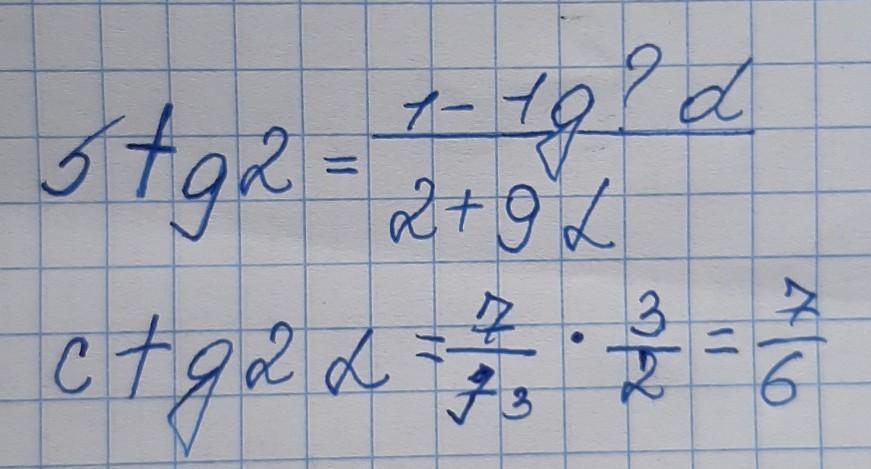 5 tg2 = (1 - 1g? α) / (2 + g α)
ctg2 α = 7/93 · 3/2 = 7/6